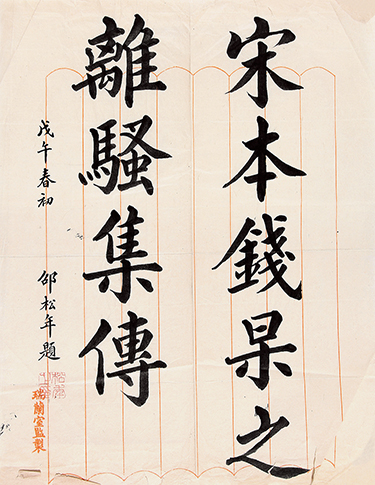 宋本錢杲之
離騷集傳
戊午春初 邵松年題
瑞蘭室監製